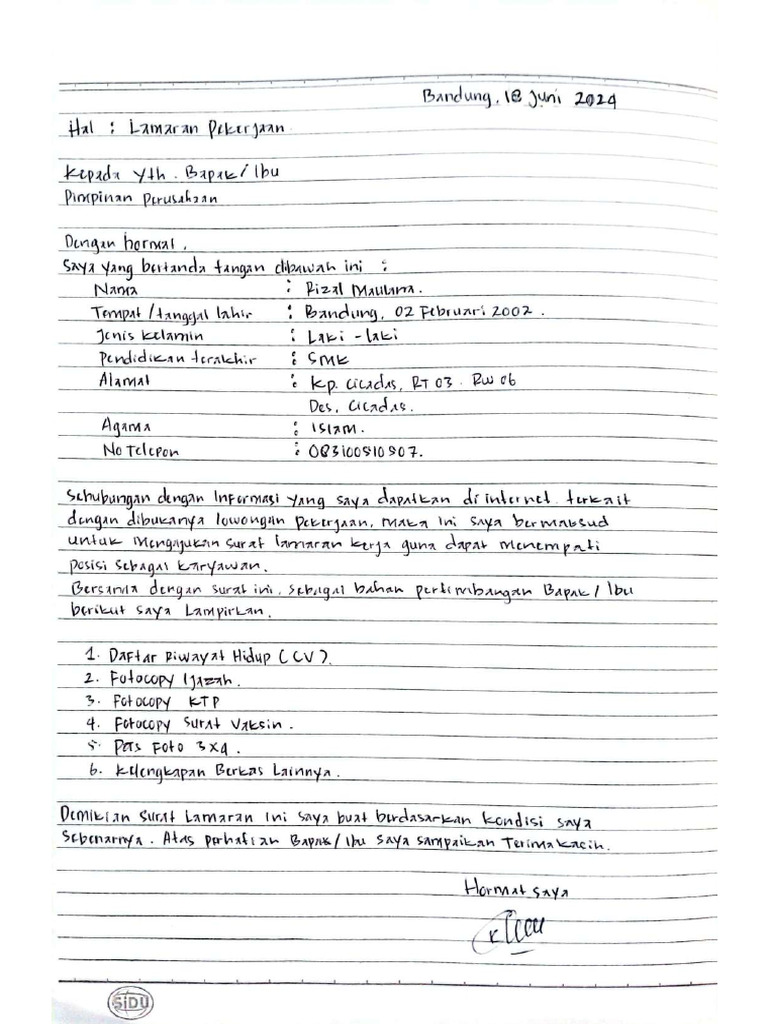 Bandung, 18 Juni 2024
Hal : Lamaran Pekerjaan
Kepada Yth. Bapak / Ibu
Pimpinan Perusahaan
Dengan hormat,
Saya yang bertanda tangan dibawah ini :
Nama : Rizal Maulana.
Tempat / tanggal lahir : Bandung, 02 Februari 2002.
Jenis kelamin : Laki - laki
Pendidikan terakhir : SMK
Alamat : Kp. Cicadas, RT 03. RW 06
Des. Cicadas.
Agama : Islam.
No Telepon : 083100510907.
Sehubungan dengan informasi yang saya dapatkan di internet terkait
dengan dibukanya lowongan pekerjaan, maka ini saya bermaksud
untuk mengajukan surat lamaran kerja guna dapat menempati
posisi sebagai karyawan.
Bersama dengan surat ini, sebagai bahan pertimbangan Bapak / Ibu
berikut saya Lampirkan.
1. Daftar Riwayat Hidup (CV).
2. Fotocopy Ijazah.
3. Fotocopy KTP
4. Fotocopy Surat Vaksin.
5. Pas Foto 3x4.
6. Kelengkapan Berkas Lainnya.
Demikian surat Lamaran ini saya buat berdasarkan kondisi saya
sebenarnya. Atas perhatian Bapak / Ibu saya sampaikan Terimakasih.
Hormat saya
SIDU